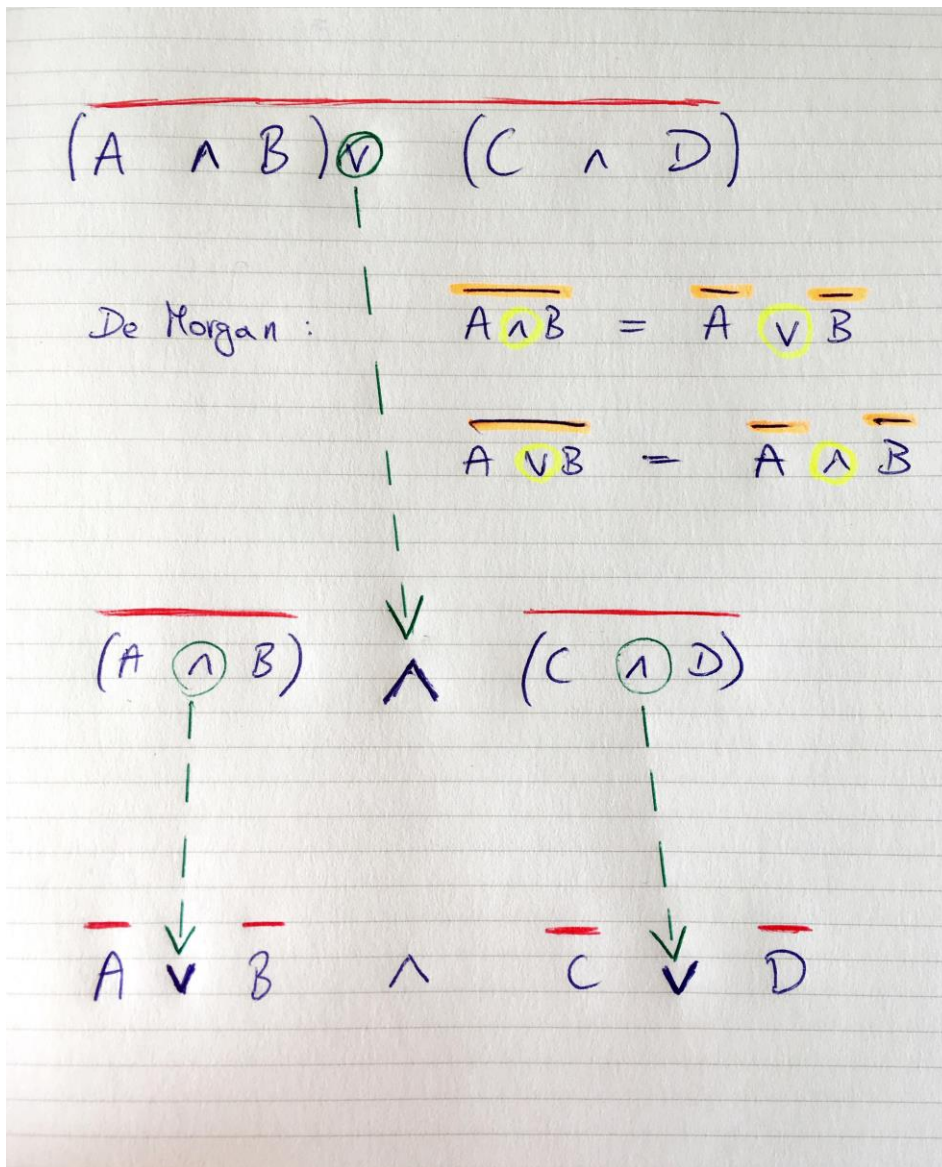 (A ∧ B) ∨ (C ∧ D)
De Morgan : A ∧ B = A ∨ B
A ∨ B = A ∧ B
(A ∧ B) ∧ (C ∧ D)
A ∨ B ∧ C ∨ D